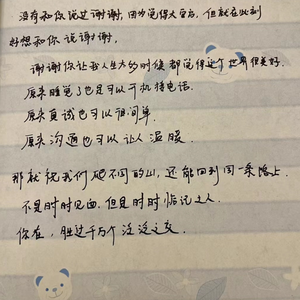 没有和你说过谢谢,因为觉得太空后,但就在此刻
好想和你说谢谢,
谢谢你让我人生大多时候都觉得这个世界很美好.
原来睡觉了也是可以开机接电话.
原来真诚也可以很简单.
原来沟通也可以让人温暖.
那就祝我们爬不同的山,还能回到同一条路上
不是时时见面,但是时时惦记之人.
你在,胜过千万个泛泛之友.